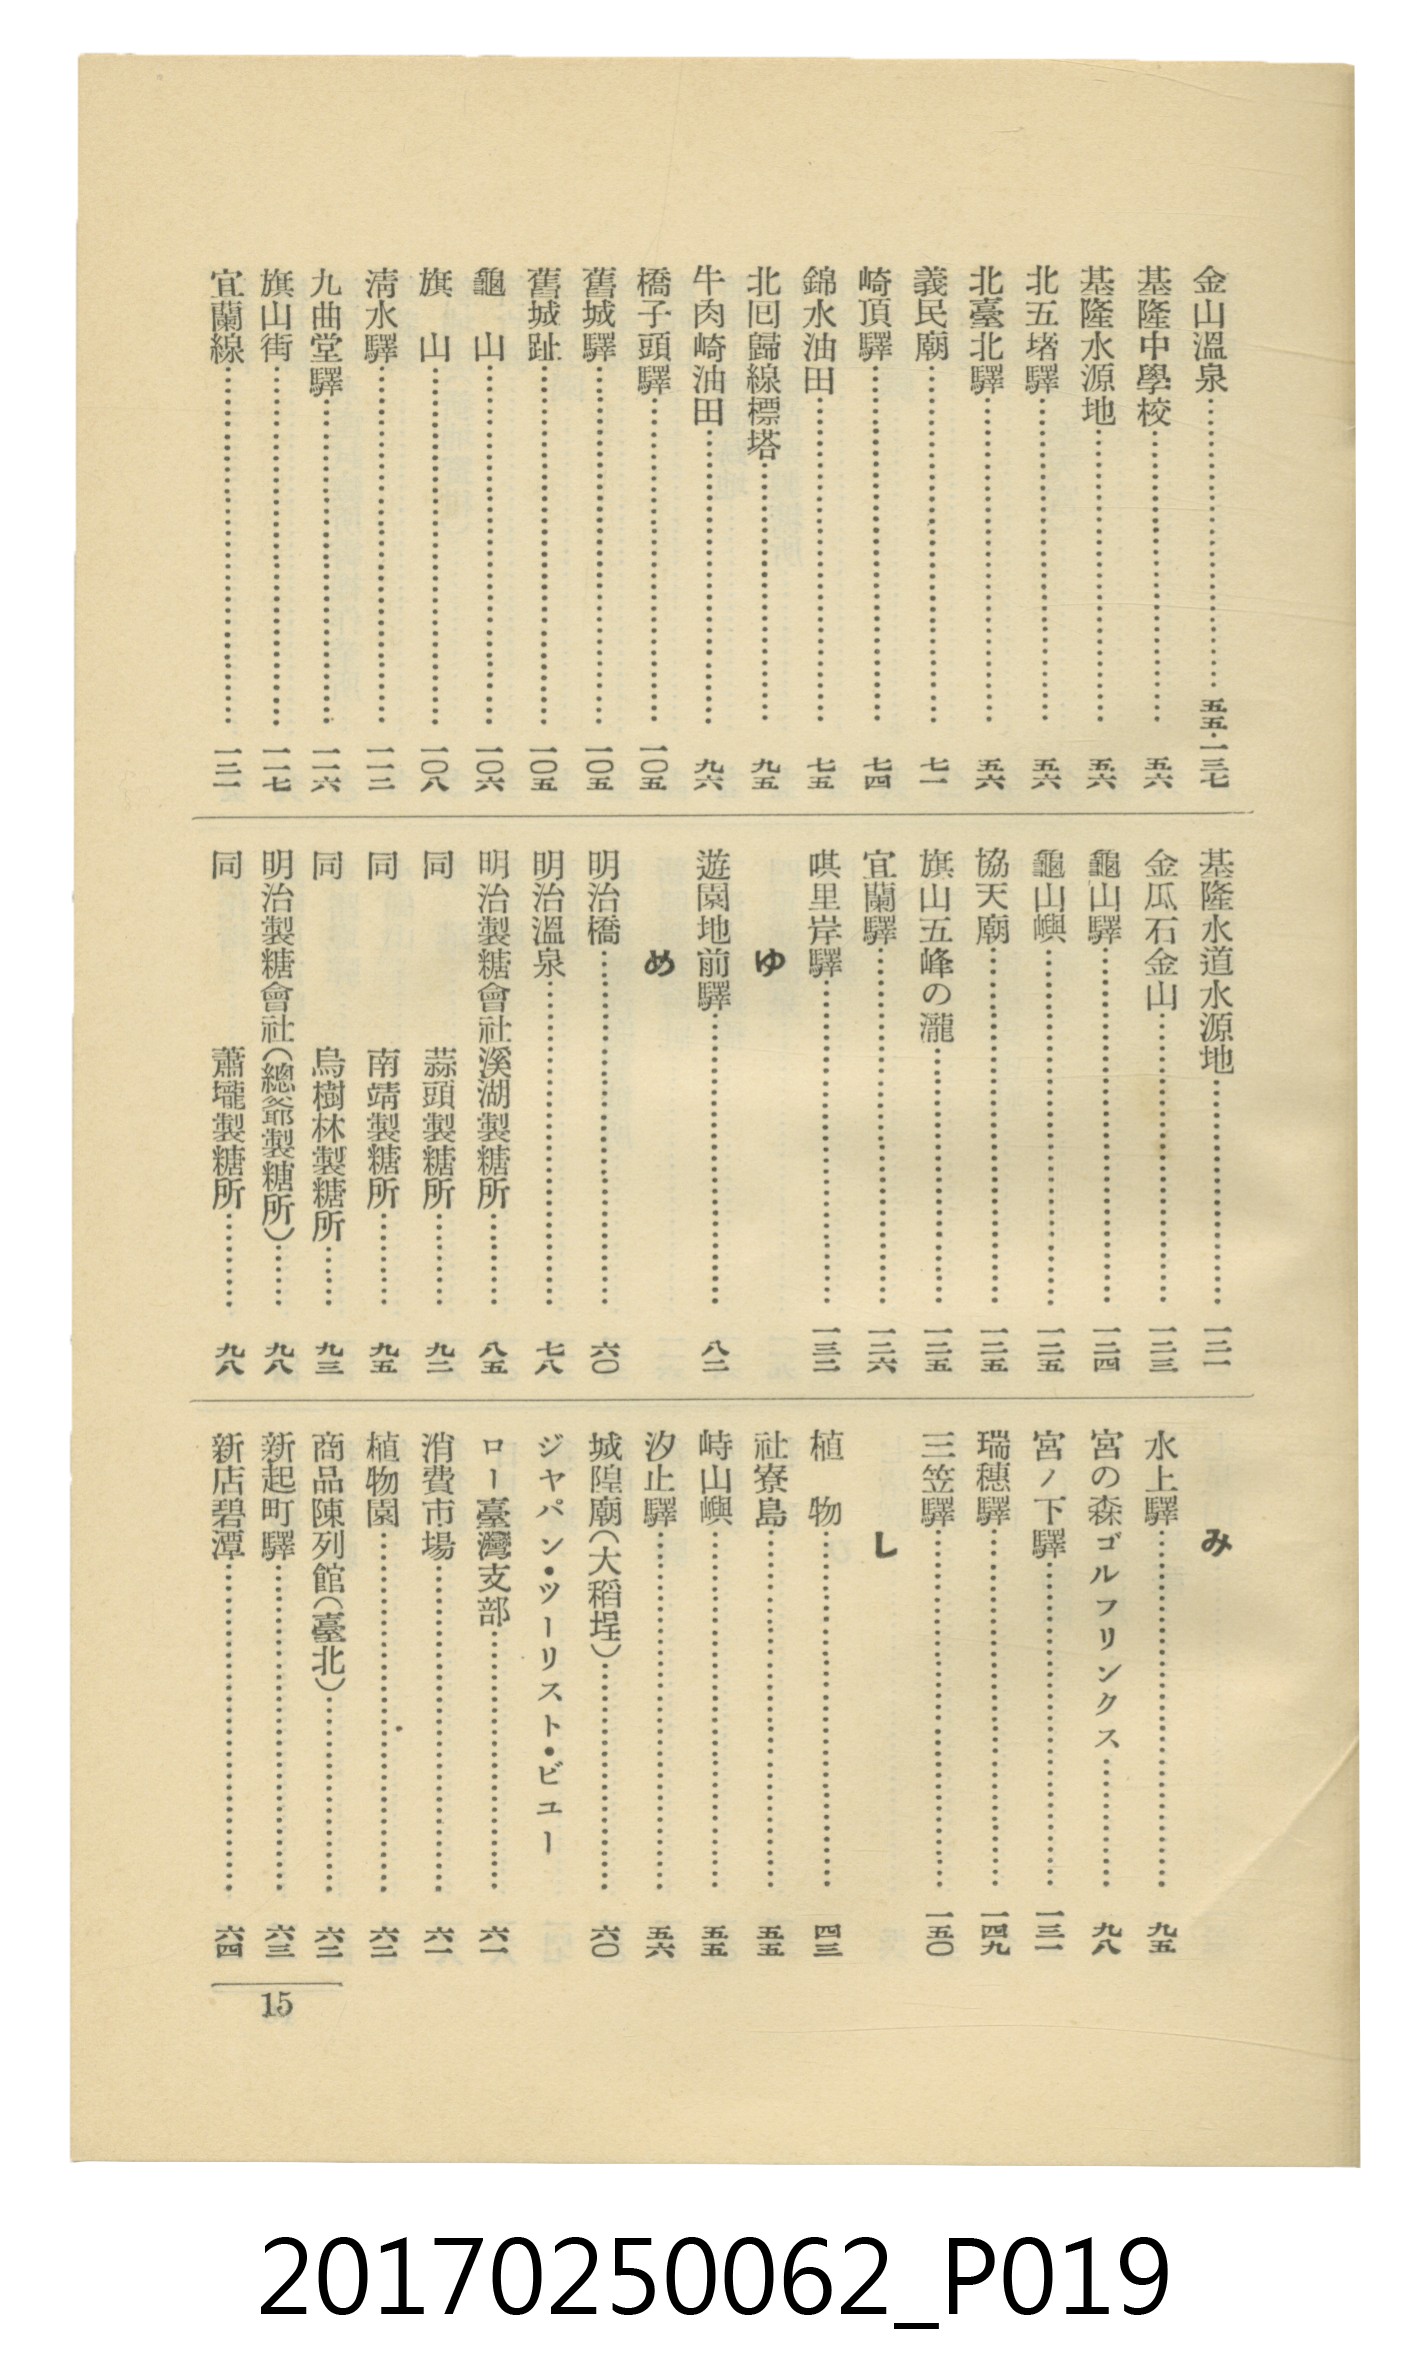 金山溫泉……五五・一三七
基隆中學校……五六
基隆水源地……五六
北五堵驛……五六
北臺北驛……五六
義民廟……七一
崎頂驛……七四
錦水油田……七五
北回歸線標塔……九五
牛肉崎油田……九六
橋子頭驛……一〇五
舊城驛……一〇五
舊城趾……一〇五
龜山……一〇六
旗山……一〇八
淸水驛……一一二
九曲堂驛……一一六
旗山街……一一七
宜蘭線……一二一
基隆水道水源地……一二一
金瓜石金山……一二三
龜山驛……一二四
龜山嶼……一二五
協天廟……一二五
旗山五峰の瀧……一二五
宜蘭驛……一二六
唭里岸驛……一三二
ゆ
遊園地前驛……八二
め
明治橋……六〇
明治溫泉……七八
明治製糖會社溪湖製糖所……八五
同 蒜頭製糖所……九二
同 南靖製糖所……九五
同 烏樹林製糖所……九三
明治製糖會社(總爺製糖所)……九八
同 蕭壠製糖所……九八
み
水上驛……九五
宮の森ゴルフリンクス……九八
宮ノ下驛……一三一
瑞穗驛……一四九
三笠驛……一五〇
し
植物……四三
社寮島……五五
峙山嶼……五五
汐止驛……五六
城隍廟(大稻埕)……六〇
ジヤパン・ツーリスト・ビユー
ロー臺灣支部……六一
消費市場……六一
植物園……六二
商品陳列館(臺北)……六二
新起町驛……六三
新店碧潭……六四
15
20170250062_P019